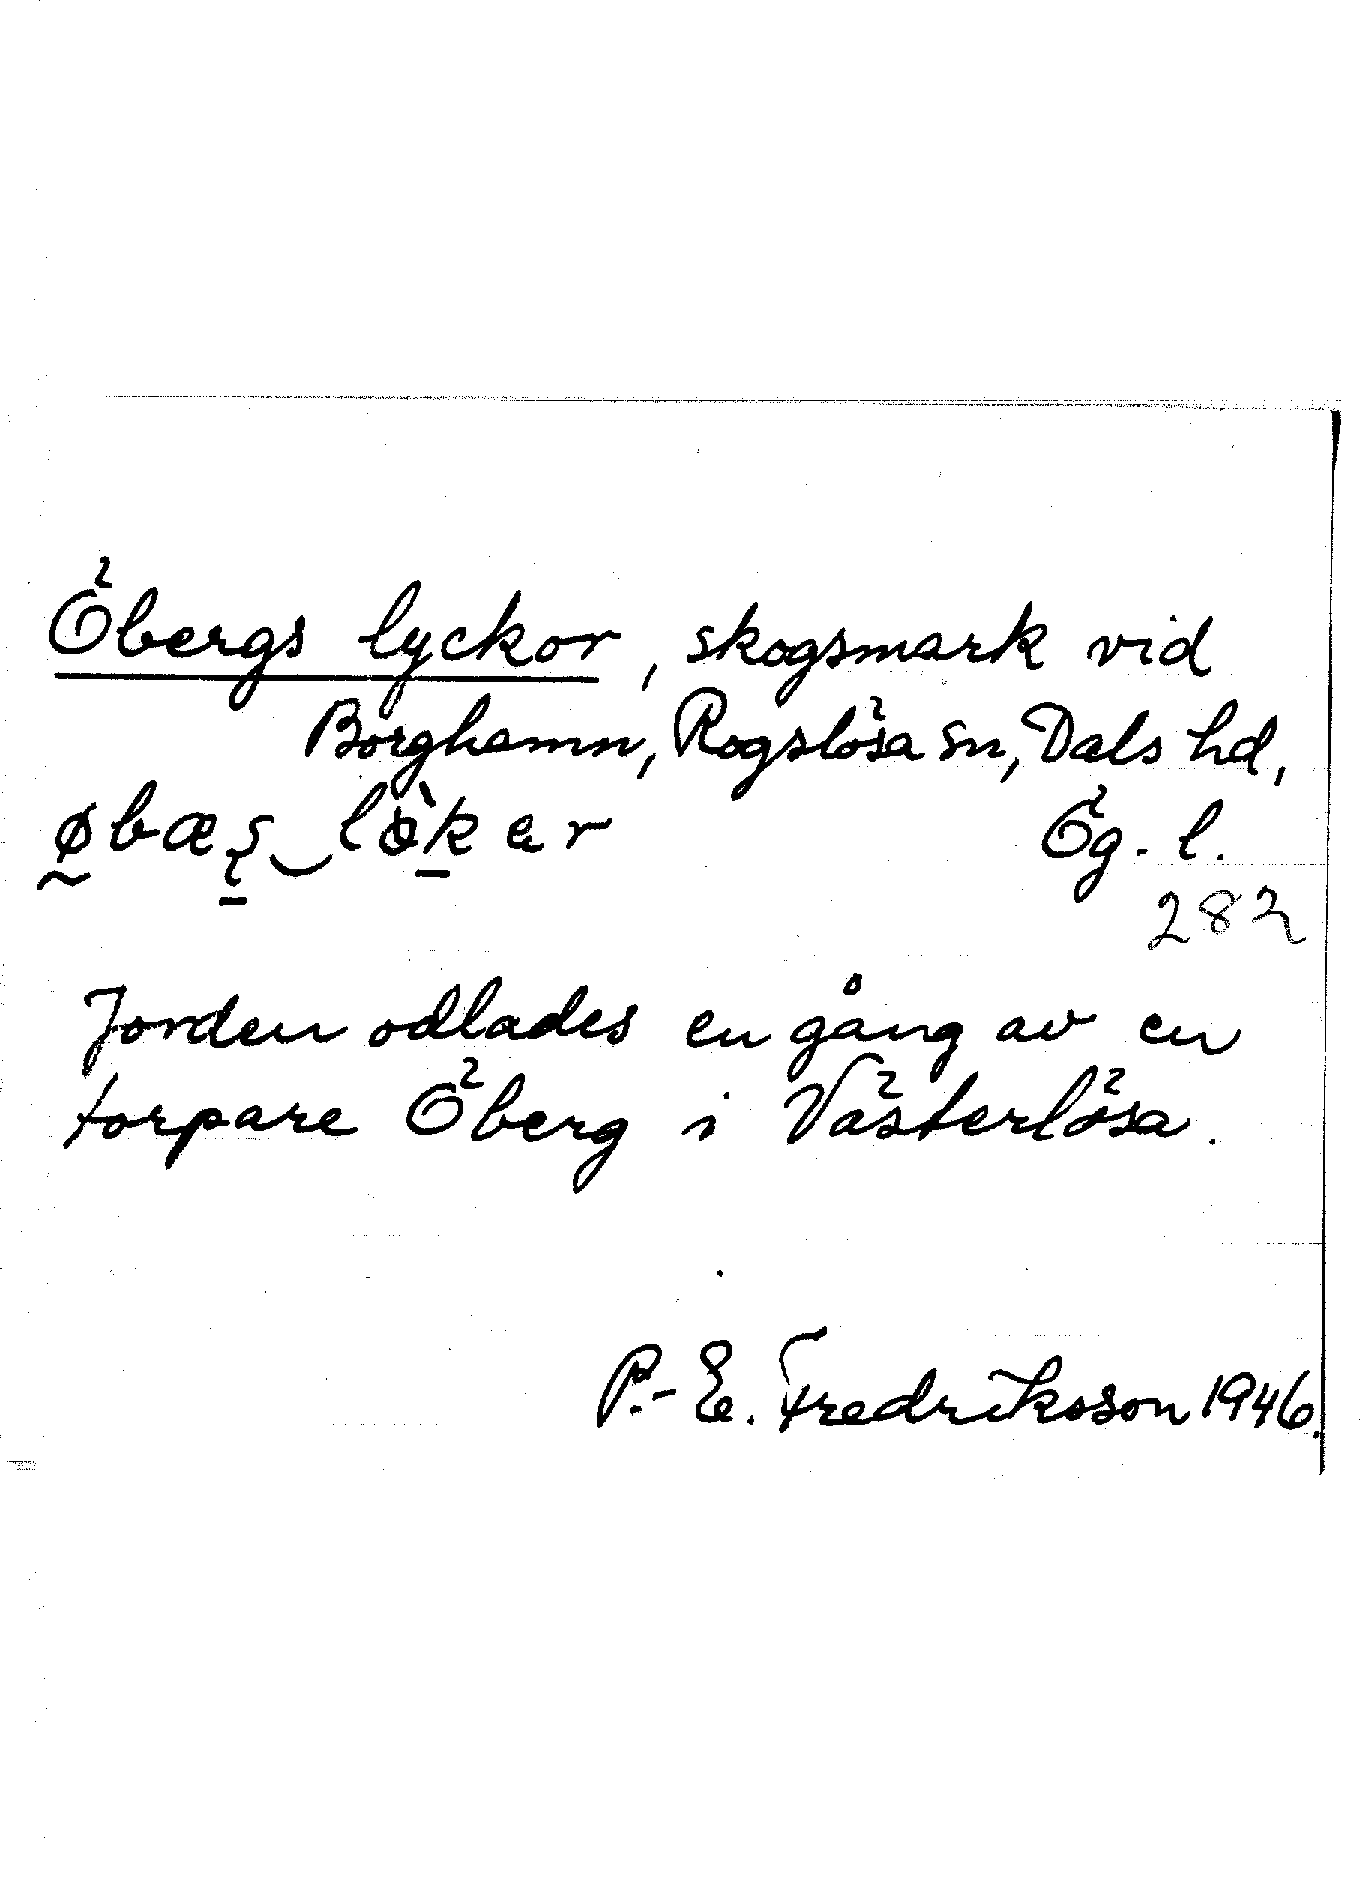 Öbergs lyckor, skogsmark vid
Borghamn, Rogslösa sn, Dals hd,
Ög. l.
282
Jorden odlades en gång av en
torpare Öberg i Västerlösa.
P.-E. Fredriksson 1946.